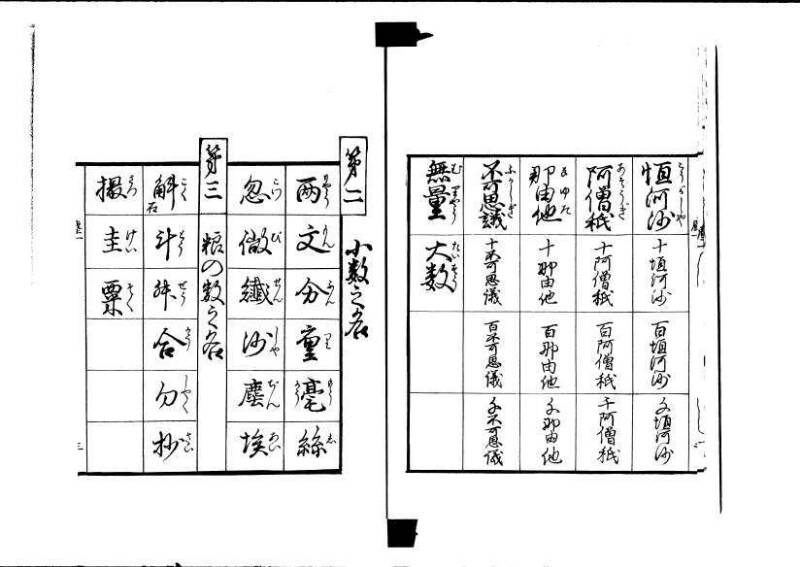 恒河沙 十恒河沙 百恒河沙 千恒河沙
阿僧祇 十阿僧祇 百阿僧祇 千阿僧祇
那由他 十那由他 百那由他 千那由他
不可思議 十不可思儀 百不可思儀 千不可思儀
無量 大数
第二 小数之名
両 文 分 釐 毫 絲
忽 微 纖 沙 塵 埃
第三 粮の数之名
斛 石 斗 升 合 勺 抄
撮 圭 粟